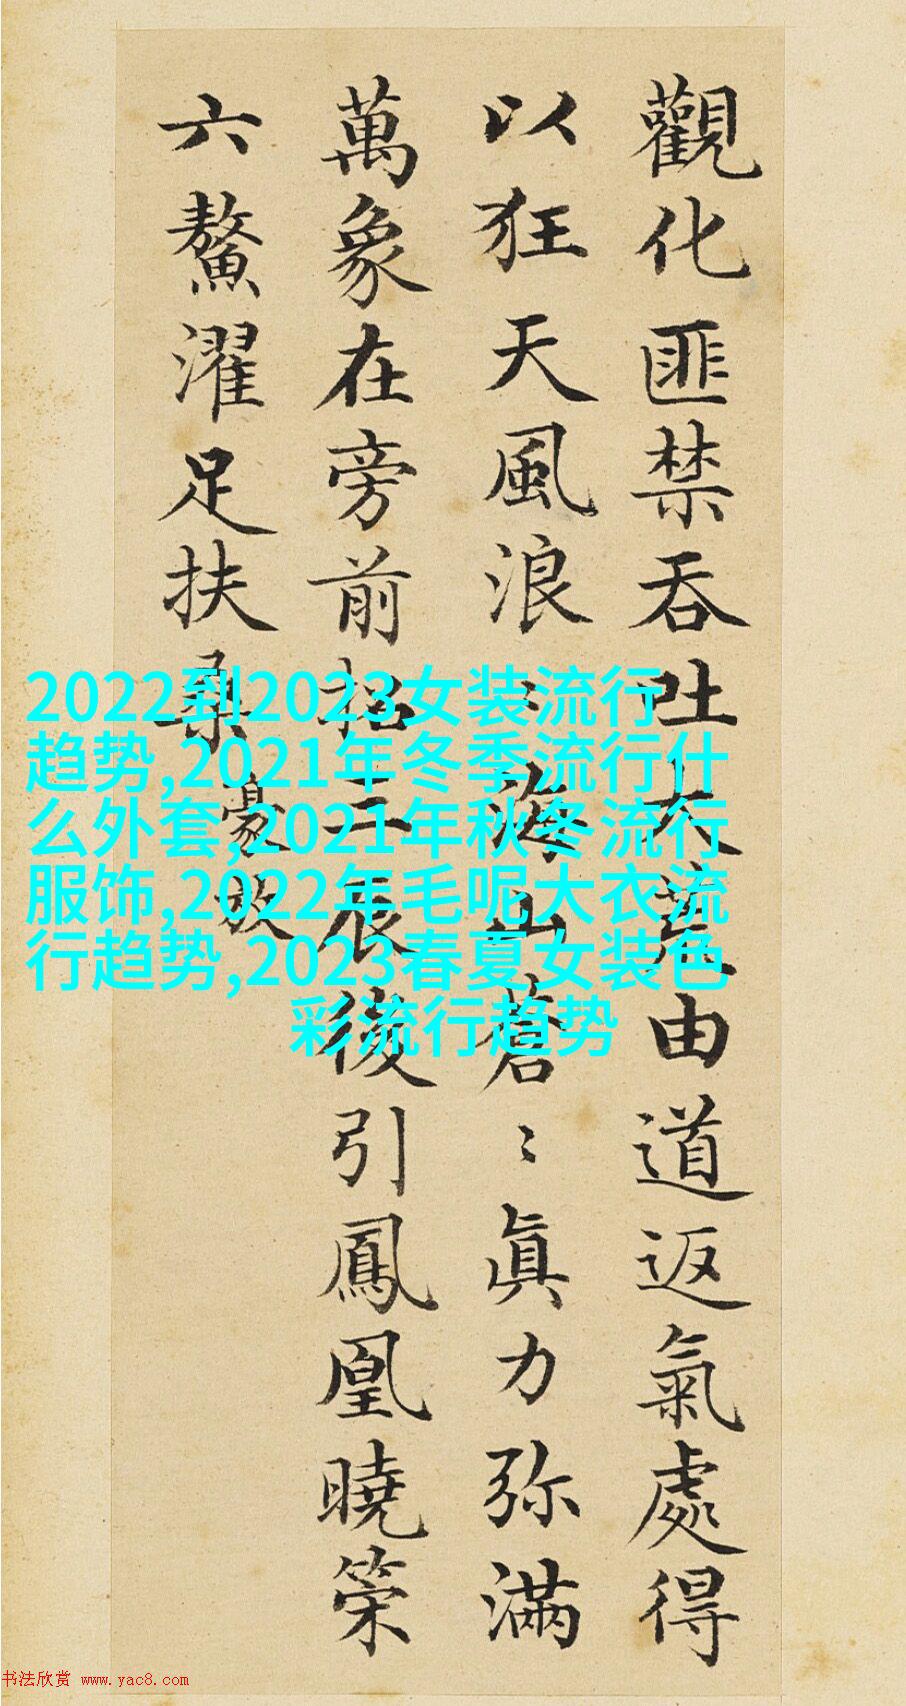 觀化匪禁吞吐大荒由道返氣處得
以狂天風浪〻海山蒼〻眞力弥滿
萬象在旁前招三辰後引鳳凰曉策
六鰲濯足扶桑
豪放
2022到2023女装流行
趋势,2021年冬季流行什
么外套,2021年秋冬流行
服饰,2022年毛呢大衣流
行趋势,2023春夏女装色
彩流行趋势
书法欣赏 www.yac8.com